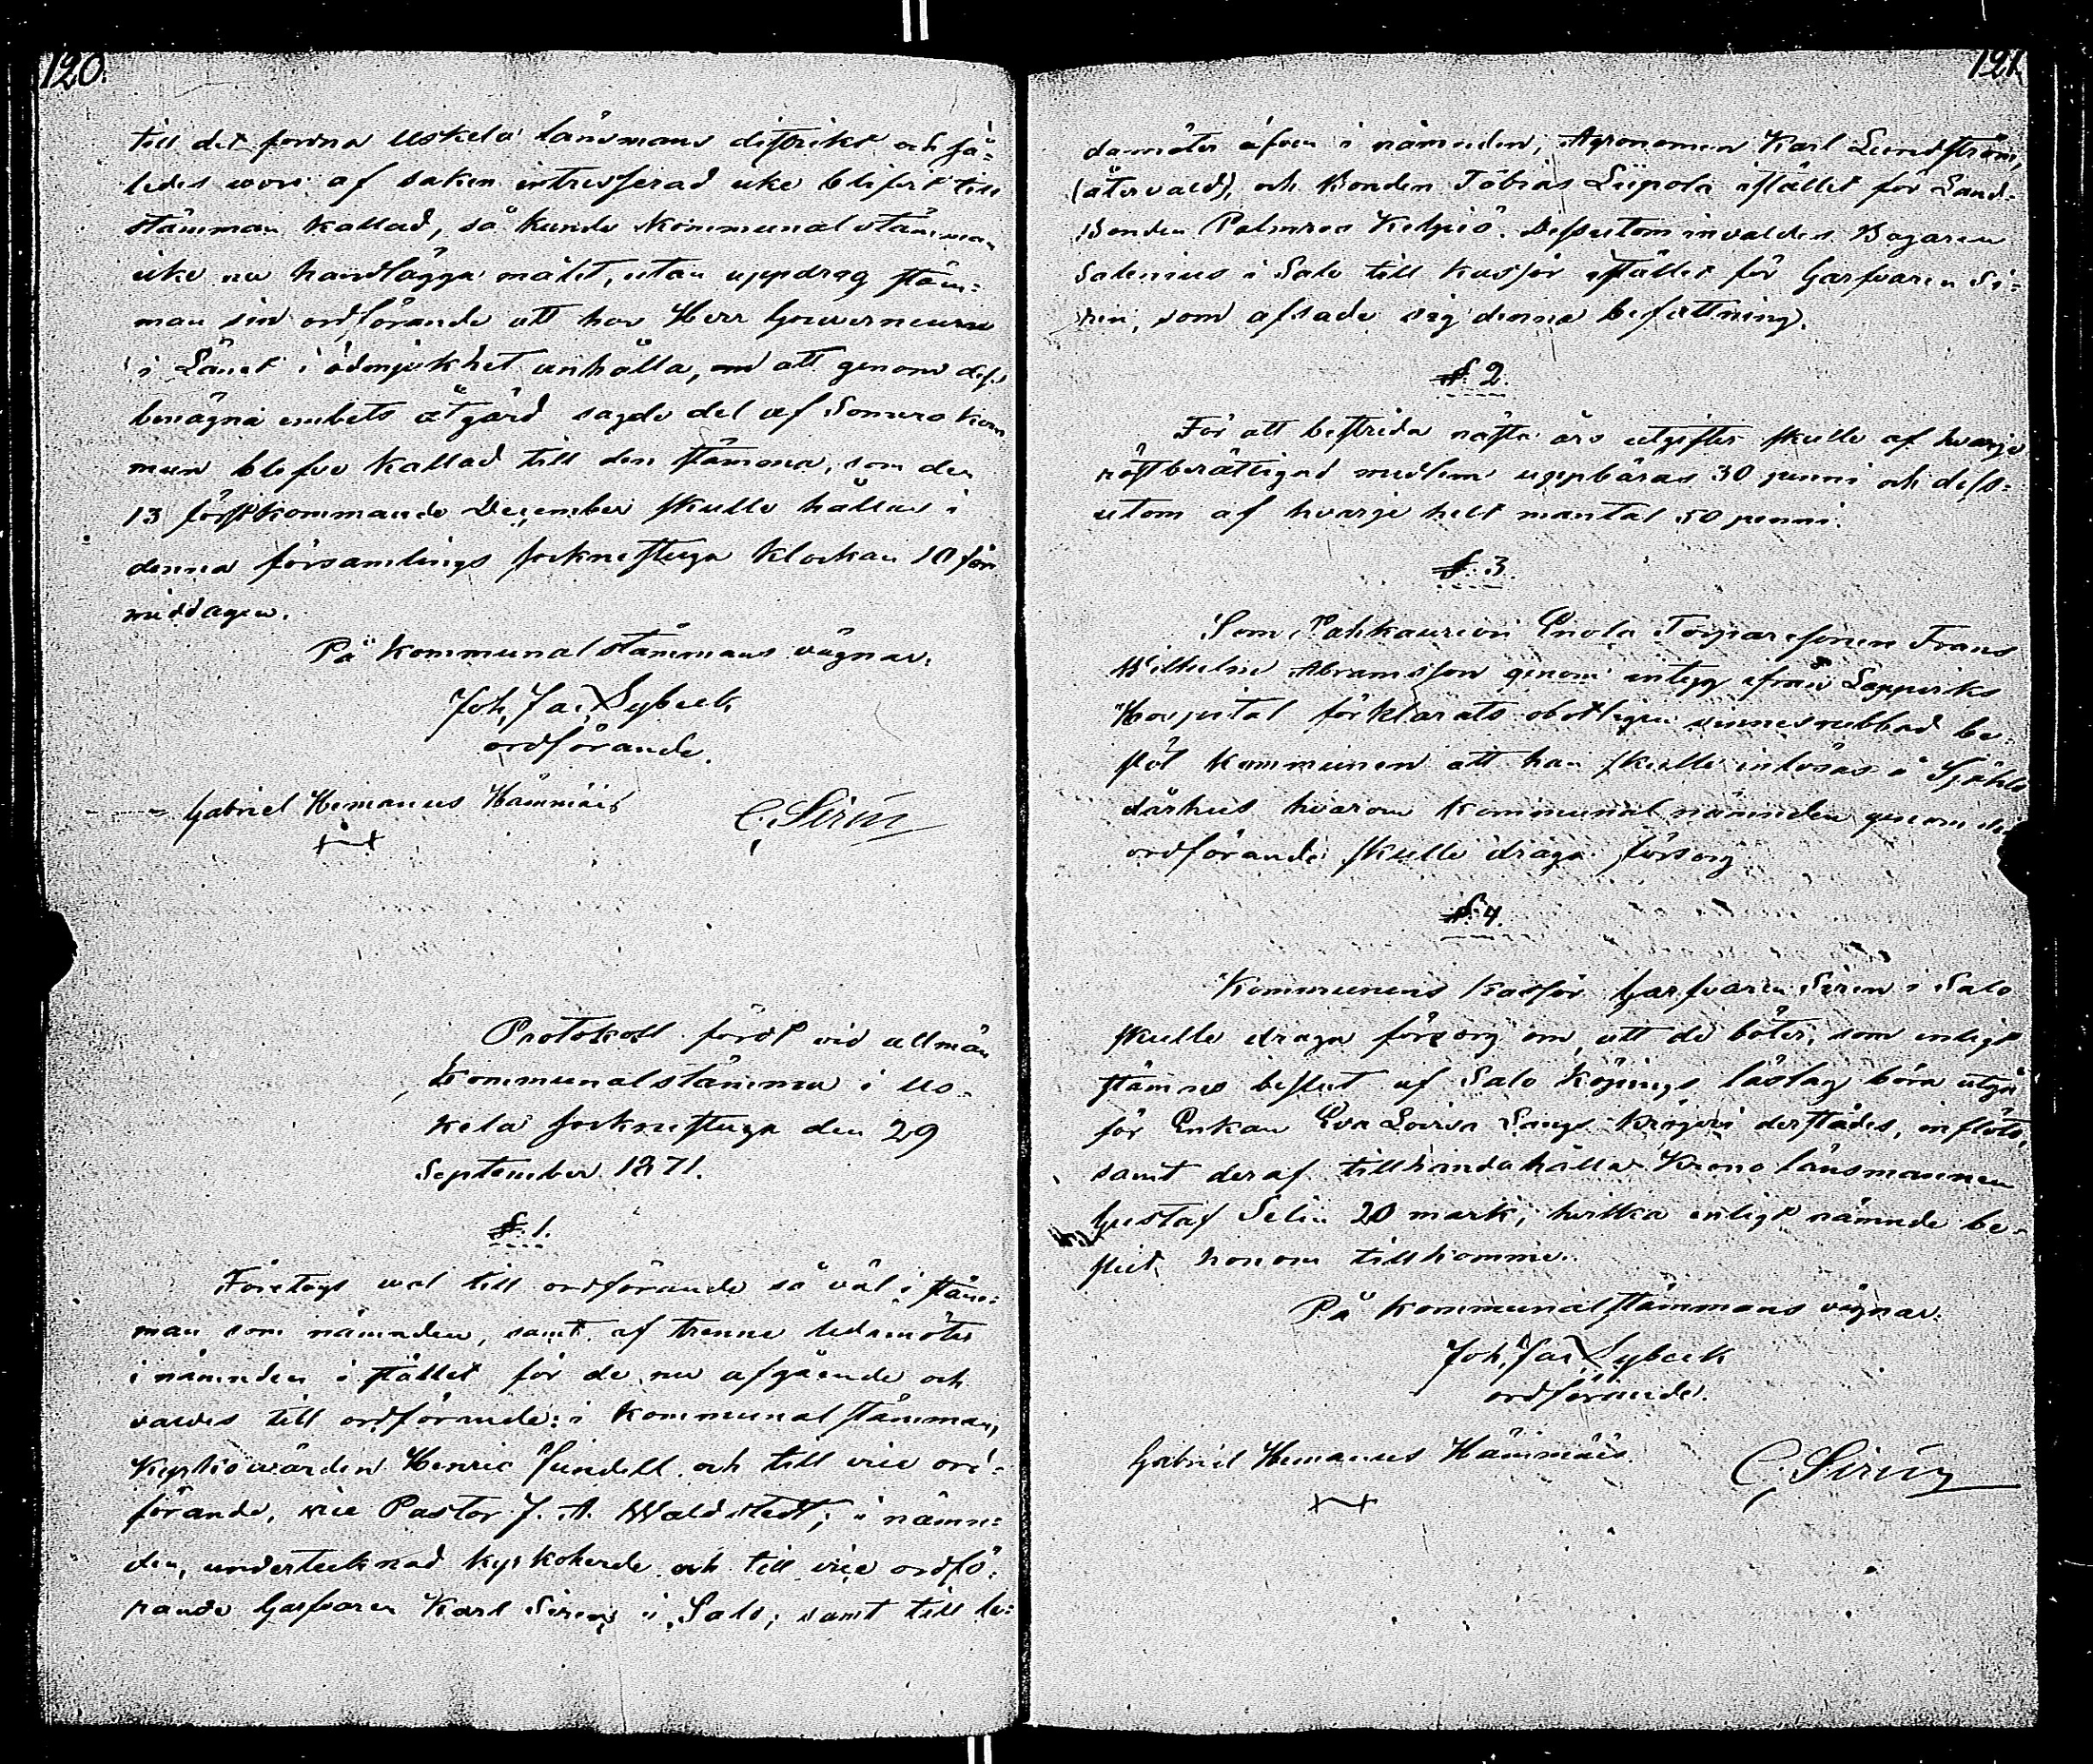 120.
till det forna Uskela länsmans distrikt och så-
ledes vore af saken intresserad icke blifvit till
stämman kallad, så kunde Kommunalstämman
icke nu handlägga målet, utan uppdrog stäm-
man sin ordförande att hos Herr Gouverneuren
i Länet i ödmjukhet anhålla, om att genom dess
benägna embets åtgärd sagde del af Somero kom
mun blefve kallad till den stämma, som den
13 förstkommande December skulle hållas i
denna församlings sockenstuga klockan 10 för
middagen.
På Kommunalstämmans vägnar.
Joh. Jac. Lybeck
ordförande.
Gabriel Hemanus Hämmäis
C. Sirén
Protokoll fördt vid allmän
Kommunalstämma i Us-
kela sockenstuga den 29
September 1871.
§. 1.
Företogs val till ordförande så väl i stäm-
man som nämnden, samt af trenne ledamöter
i nämnden i stället för de nu afgående och
valdes till ordförande: i Kommunalstämman,
Kyrkiovärden Henric Jundell och till vice ord-
förande, vice Pastor J. A. Waldstedt; i nämn-
den, undertecknad Kyrkoherde och till vice ordfö-
rande Garfvaren Karl Siren i Salo; samt till le-
121.
damöter äfven i nämnden, Agronomen Karl Lundström,
(återvald), och Bonden Tobias Liipola istället för Land-
Bonden Palmroo Kelpiö. Dessutom invaldes Bagaren
Salenius i Salo till Kassör istället för Garfvaren Si-
rén, som afsade sig denna befattning.
§. 2.
För att bestrida nästa års utgifter skulle af hvarje
röstberättigad medlem uppbäras 30 penni och dess-
utom af hvarje helt mantal 50 penni.
§. 3.
Som Pahkavuori Enola Torparesonen Frans
Wilhelm Abramsson genom intyg från Lappviks
Hospital förklarats obotligen sinnesrubbad be-
slöt Kommunen att han skulle inlösas i Själö
dårhus hvarom Kommunalnämnden genom dess
ordförande skulle draga försorg.
§. 4.
Kommunens Kassör Garfvaren Siren i Salo
skulle draga försorg om, att de böter, som enligt
stämmo beslut af Salo Köpings låslag böra utgå
för Enkan Eva Lovisa Langs krögeri derstädes, inflöto,
samt deraf tillhandahålla Krono länsmannen
Gustaf Selin 20 mark, hvilka enligt nämnde be-
slut honom tillkomme.
På Kommunalstämmans vägnar.
Joh. Jac. Lybeck
ordförande.
Gabriel Hemanus Hämmäis
C. Sirén